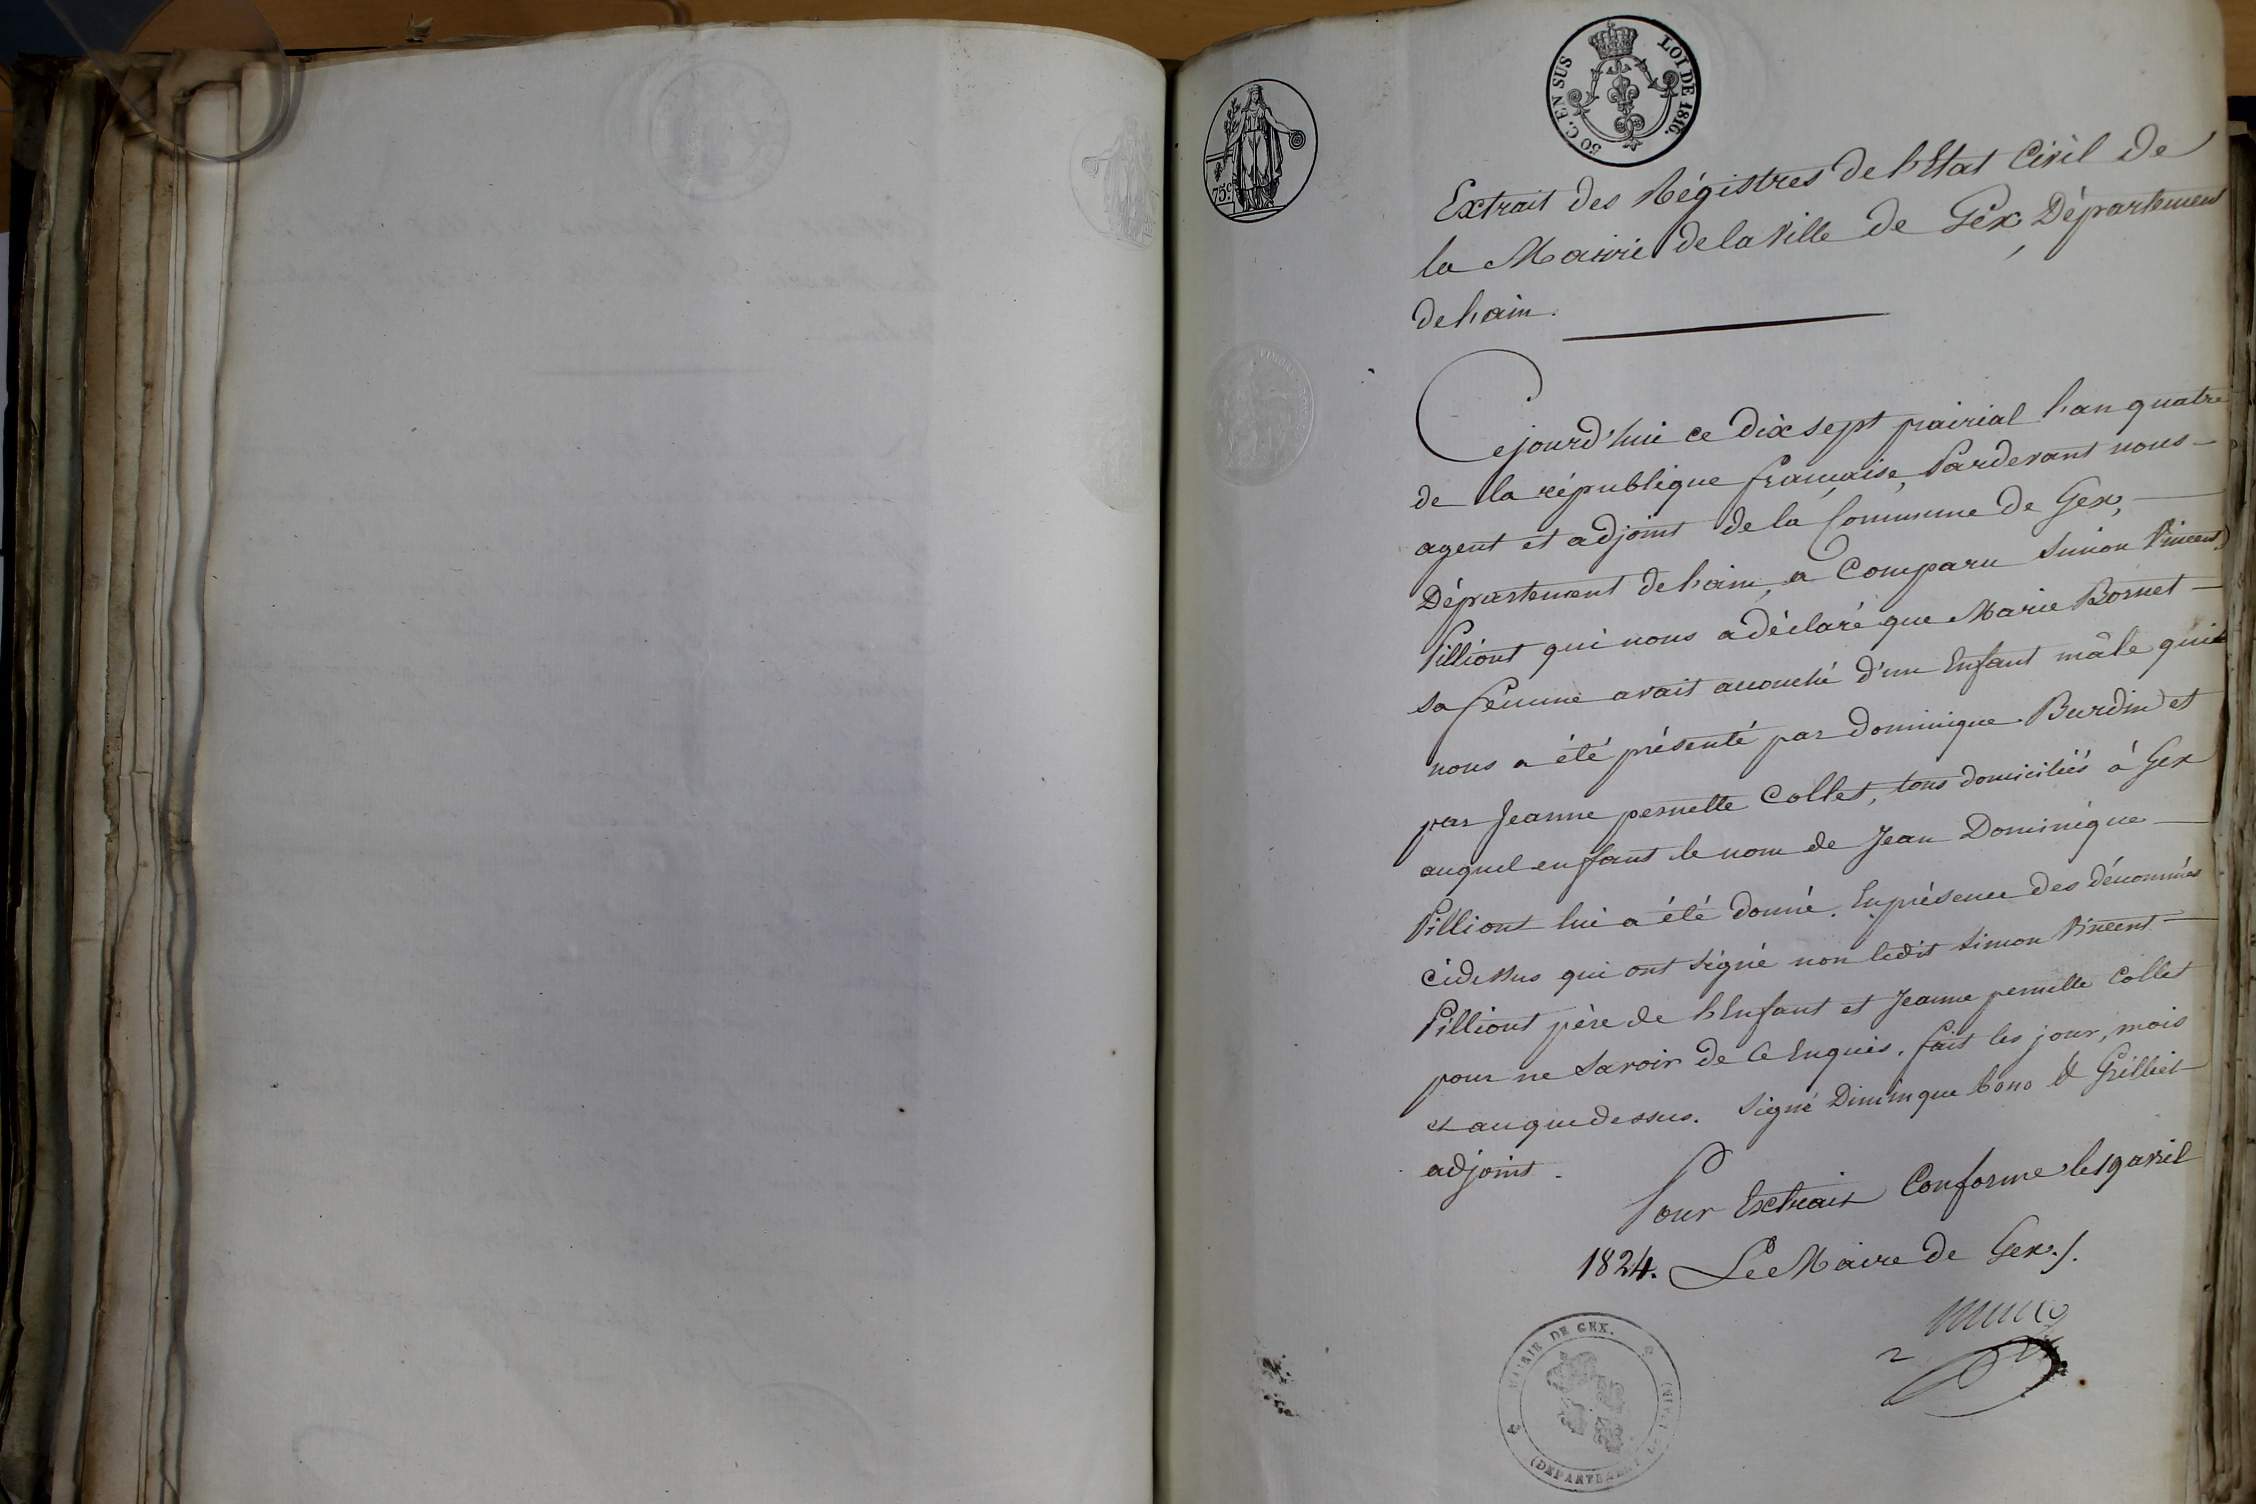 50 C. EN SUS LOI DE 1816.
75 c.
Extrait des Régistres de l'Etat Civil de
la Mairie de la Ville de Gex, Département
de l'ain.
Cejourd'hui ce dix sept prairial l'an quatre
de la république française, Pardevant nous
agent et adjoint de la Commune de Gex,
Département de l'ain, a Comparu Simon Vincent
Pilliont qui nous a déclaré que Marie Bornet
sa femme avait accouché d'un Enfant mâle qui
nous a été présenté par Dominique Burdin et
par Jeanne pernette Collet, tous domiciliés à Gex
auquel enfant le nom de Jean Dominique
Pilliont lui a été donné. En présence des dénommés
cidessus qui ont signé non ledit Simon Vincent
Pilliont père de l'Enfant et Jeanne pernette Collet
pour ne savoir de ce Enquis. fait les jour, mois
et an que dessus. Signé Diminque bono & Grilliet
adjoint.
Pour Extrait Conforme le 19 avril
1824. Le Maire de Gex./.
MAIRIE DE GEX.
(DÉPARTEMENT DE L'AIN)